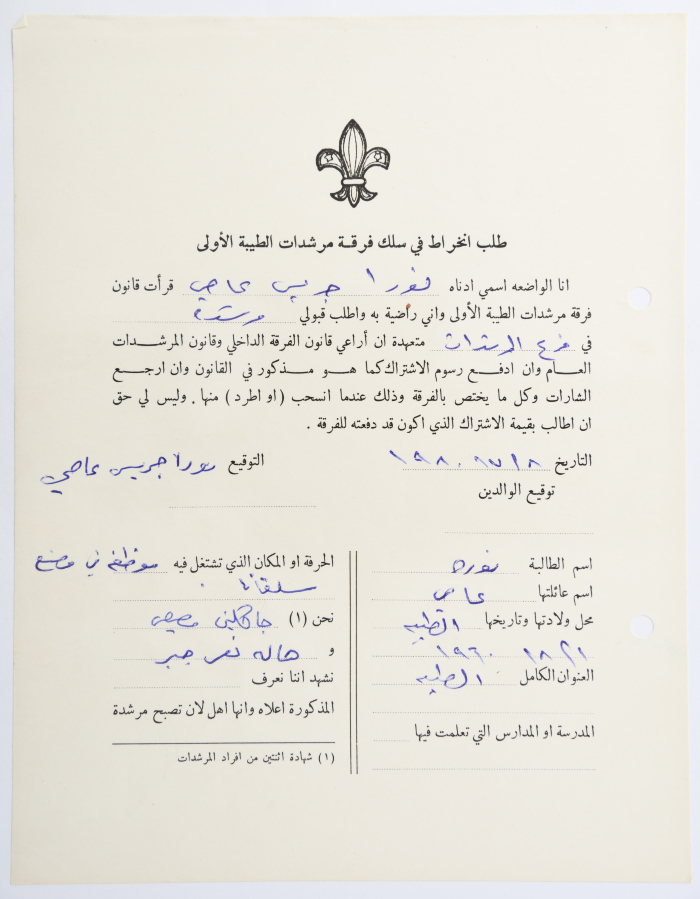 طلب انخراط في سلك فرقة مرشدات الطيبة الأولى
انا الواضعه اسمي ادناه نورا جريس عاصي قرأت قانون
فرقة مرشدات الطيبة الأولى واني راضية به واطلب قبولي مرشدة
في فرع المرشدات متعهدة ان أراعي قانون الفرقة الداخلي وقانون المرشدات
العام وان ادفع رسوم الاشتراك كما هو مذكور في القانون وان ارجع
الشارات وكل ما يختص بالفرقة وذلك عندما انسحب (او اطرد) منها. وليس لي حق
ان اطالب بقيمة الاشتراك الذي اكون قد دفعته للفرقة.
التاريخ
التوقيع نورا جريس عاصي
توقيع الوالدين
اسم الطالبة نوره
اسم عائلتها عاصي
محل ولادتها وتاريخها الطيبه
١٩٦٠
العنوان الكامل الطيبه
المدرسة او المدارس التي تعلمت فيها
الحرفة او المكان الذي تشتغل فيه موظفه في مصنع
سلفانا
نحن (١) جاكلين
و هاله نصر جبر
نشهد اننا نعرف
المذكورة اعلاه وانها اهل لان تصبح مرشدة
(١) شهادة اثنتين من افراد المرشدات